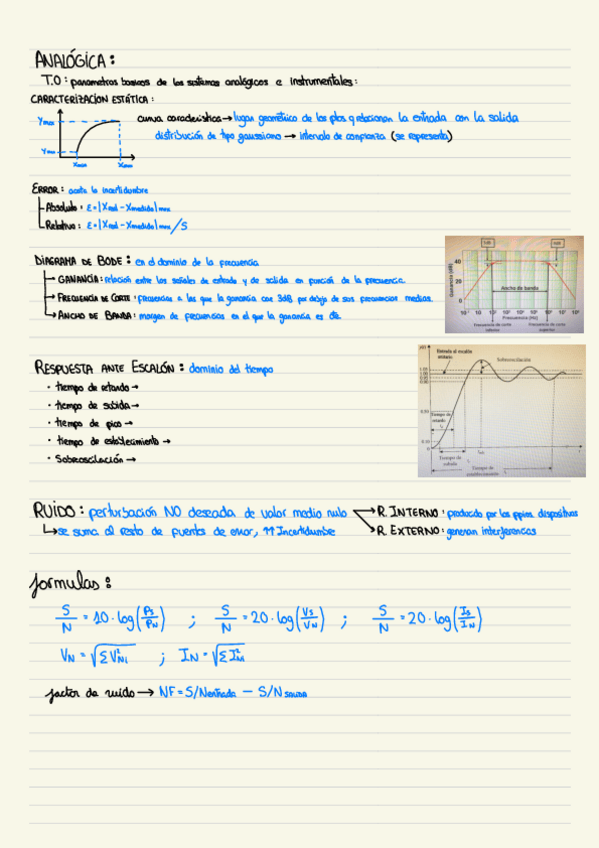 ANALÓGICA:
T.0: parametros basicos de los sistemas analógicos e instrumentales:
CARACTERIZACION ESTÁTICA:
curva caracteristica → lugar geométrico de los ptos q relacionen la entrada con la salida
Ymax
distribución de tipo gaussiano → intervalo de confianza (se representa)
Ymin
Xmin Xmax
ERROR: acota la incertidumbre
Absoluto: ε=|Xreal - Xmedida|max
Relativo: ε=|Xreal - Xmedida|max/S
DIAGRAMA DE BODE: en el dominio de la frecuencia
GANANCIA: relación entre las señales de entrada y de salida en función de la frecuencia
FRECUENCIA DE CORTE: frecuencias a las que la ganancia cae 3dB por debajo de sus frecuencias medias.
ANCHO DE BANDA: margen de frecuencias en el que la ganancia es cte.
3dB 3dB
Ganancia (dB)
40
20
0
Ancho de banda
Frecuencia (Hz)
Frecuencia de corte inferior
Frecuencia de corte superior
RESPUESTA ANTE ESCALÓN: dominio del tiempo
· tiempo de retardo →
· tiempo de subida →
· tiempo de pico →
· tiempo de establecimiento →
· Sobreoscilación →
Entrada al escalón unitario
Sobreoscilación
Tiempo de retardo
Tiempo de subida
Tiempo de establecimiento
RUIDO: perturbación NO deseada de valor medio nulo
R. INTERNO: producido por los ppios dispositivos
↳ se suma al resto de fuentes de error, ↑↑ Incertidumbre
R. EXTERNO: generan interferencias
formulas:
S/N = 10·log(PS/PN) ; S/N = 20·log(VS/VN) ; S/N = 20·log(IS/IN)
VN = √ΣV²Ni ; IN = √ΣI²Ni
factor de ruido → NF = S/N entrada − S/N SALIDA